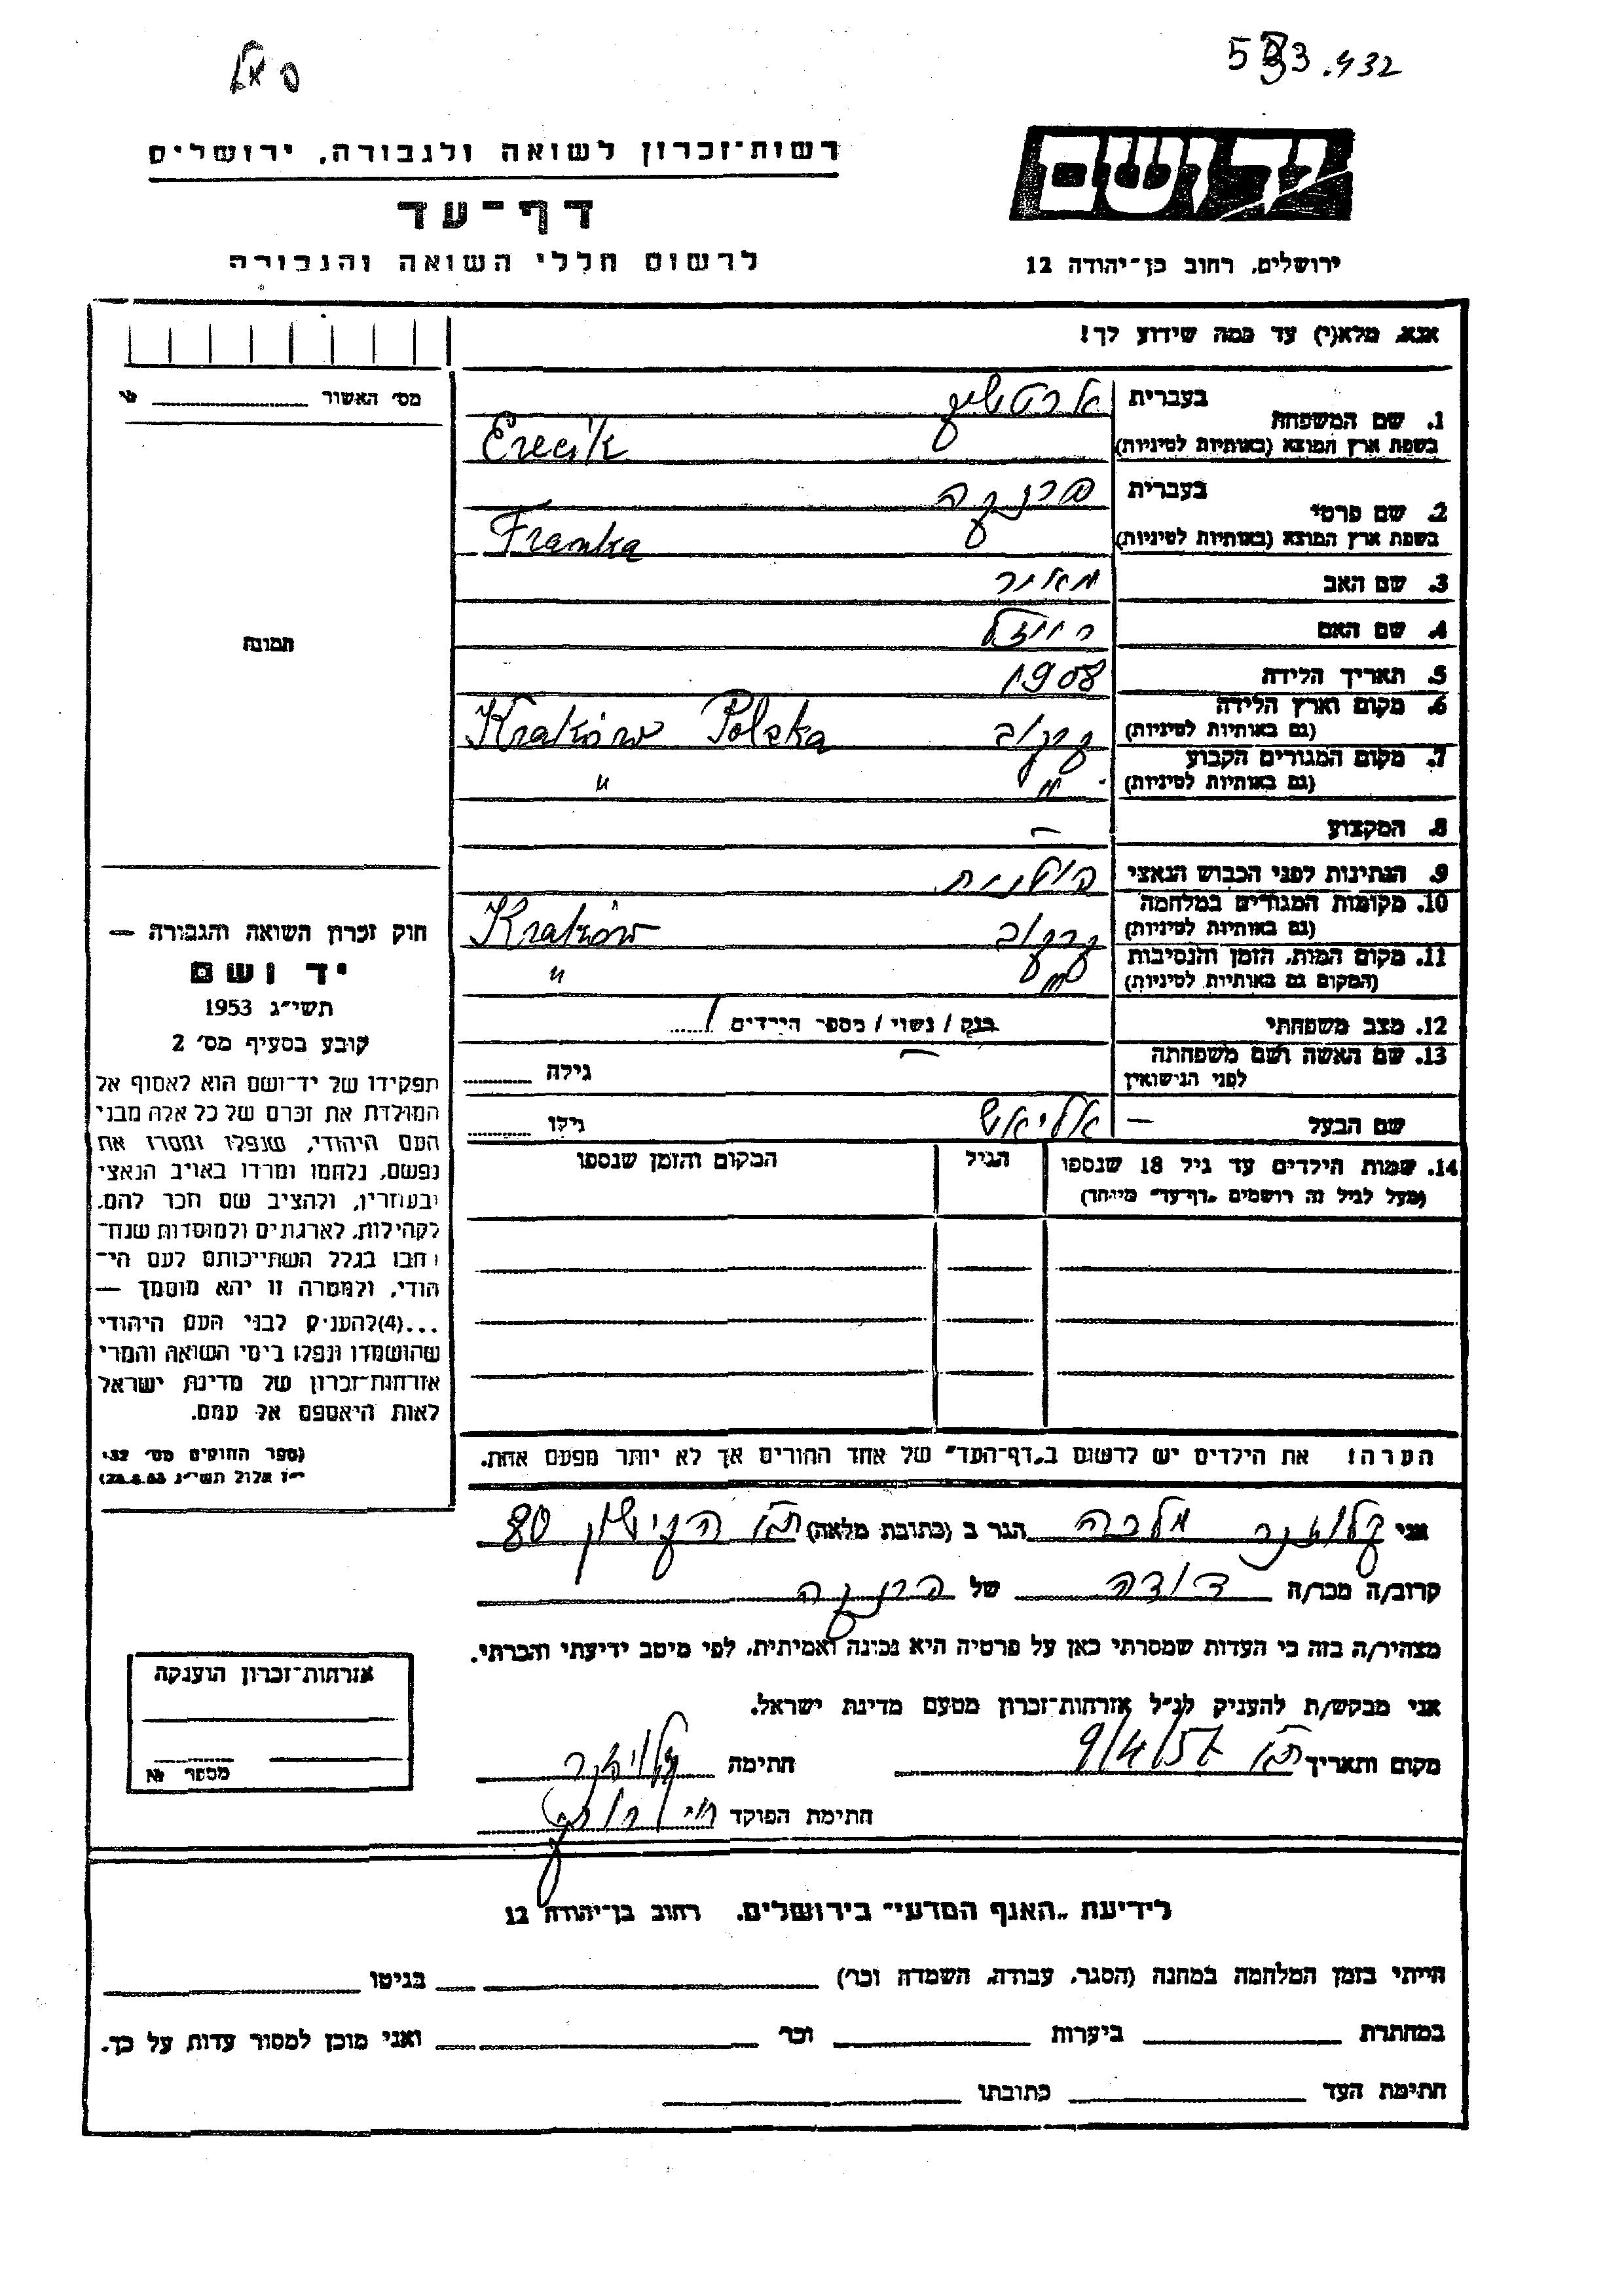 432.
רשות־זכרון לשואה ולגבורה, ירושלים
ידושם
דף־עד
לרשום חללי השואה והגבורה
ירושלים, רחוב בן־יהודה 12
אנא, מלא(י) עד כמה שידוע לך!
מס׳ האשור
1. שם המשפחה
בעברית
בשפת ארץ המוצא (באותיות לטיניות) Erecik
2. שם פרטי
בעברית פרנקה
בשפת ארץ המוצא (באותיות לטיניות) Franka
3. שם האב מאיר
4. שם האם רויזל
5. תאריך הלידה 1908
6. מקום וארץ הלידה קרקוב Kraków Polska
(גם באותיות לטיניות)
7. מקום המגורים הקבוע
(גם באותיות לטיניות) " "
8. המקצוע —
9. הנתינות לפני הכבוש הנאצי פולנית
10. מקומות המגורים במלחמה קרקוב Kraków
(גם באותיות לטיניות)
11. מקום המות, הזמן והנסיבות
(המקום גם באותיות לטיניות) " "
12. מצב משפחתי רווק / נשוי / מספר הילדים 1
13. שם האשה ושם משפחתה — גילה
לפני הנישואין
שם הבעל — אליאש גילו
14. שמות הילדים עד גיל 18 שנספו הגיל המקום והזמן שנספו
(מעל לגיל זה רושמים „דף־עד" מיוחד)
הערה! את הילדים יש לרשום ב„דף־העד" של אחד ההורים אך לא יותר מפעם אחת.
תמונה
חוק זכרון השואה והגבורה —
יד ושם
תשי״ג 1953
קובע בסעיף מס׳ 2
תפקידו של יד־ושם הוא לאסוף אל
המולדת את זכרם של כל אלה מבני
העם היהודי, שנפלו ומסרו את
נפשם, נלחמו ומרדו באויב הנאצי
ובעוזריו, ולהציב שם וזכר להם,
לקהילות, לארגונים ולמוסדות שנח־
רבו בגלל השתייכותם לעם הי־
הודי, ולמטרה זו יהא מוסמך —
...(4)להעניק לבני העם היהודי
שהושמדו ונפלו בימי השואה והמרי
אזרחות־זכרון של מדינת ישראל
לאות היאספם אל עמם.
(ספר החוקים מס׳ 132
י״ז אלול תשי״ג 28.8.53)
אני מלכה הגר ב (כתובת מלאה) ת״א הקישון 80
קרוב/ה מכר/ה דודה של פרנקה
מצהיר/ה בזה כי העדות שמסרתי כאן על פרטיה היא נכונה ואמיתית, לפי מיטב ידיעתי והכרתי.
אני מבקש/ת להעניק לנ״ל אזרחות־זכרון מטעם מדינת ישראל.
מקום ותאריך ת״א 9/4/57 חתימה
חתימת הפוקד
אזרחות־זכרון הוענקה
מספר №
לידיעת „האגף המדעי" בירושלים, רחוב בן־יהודה 12
הייתי בזמן המלחמה במחנה (הסגר, עבודה, השמדה וכו׳) בגיטו
במחתרת ביערות וכו׳ ואני מוכן למסור עדות על כך.
חתימת העד כתובתו